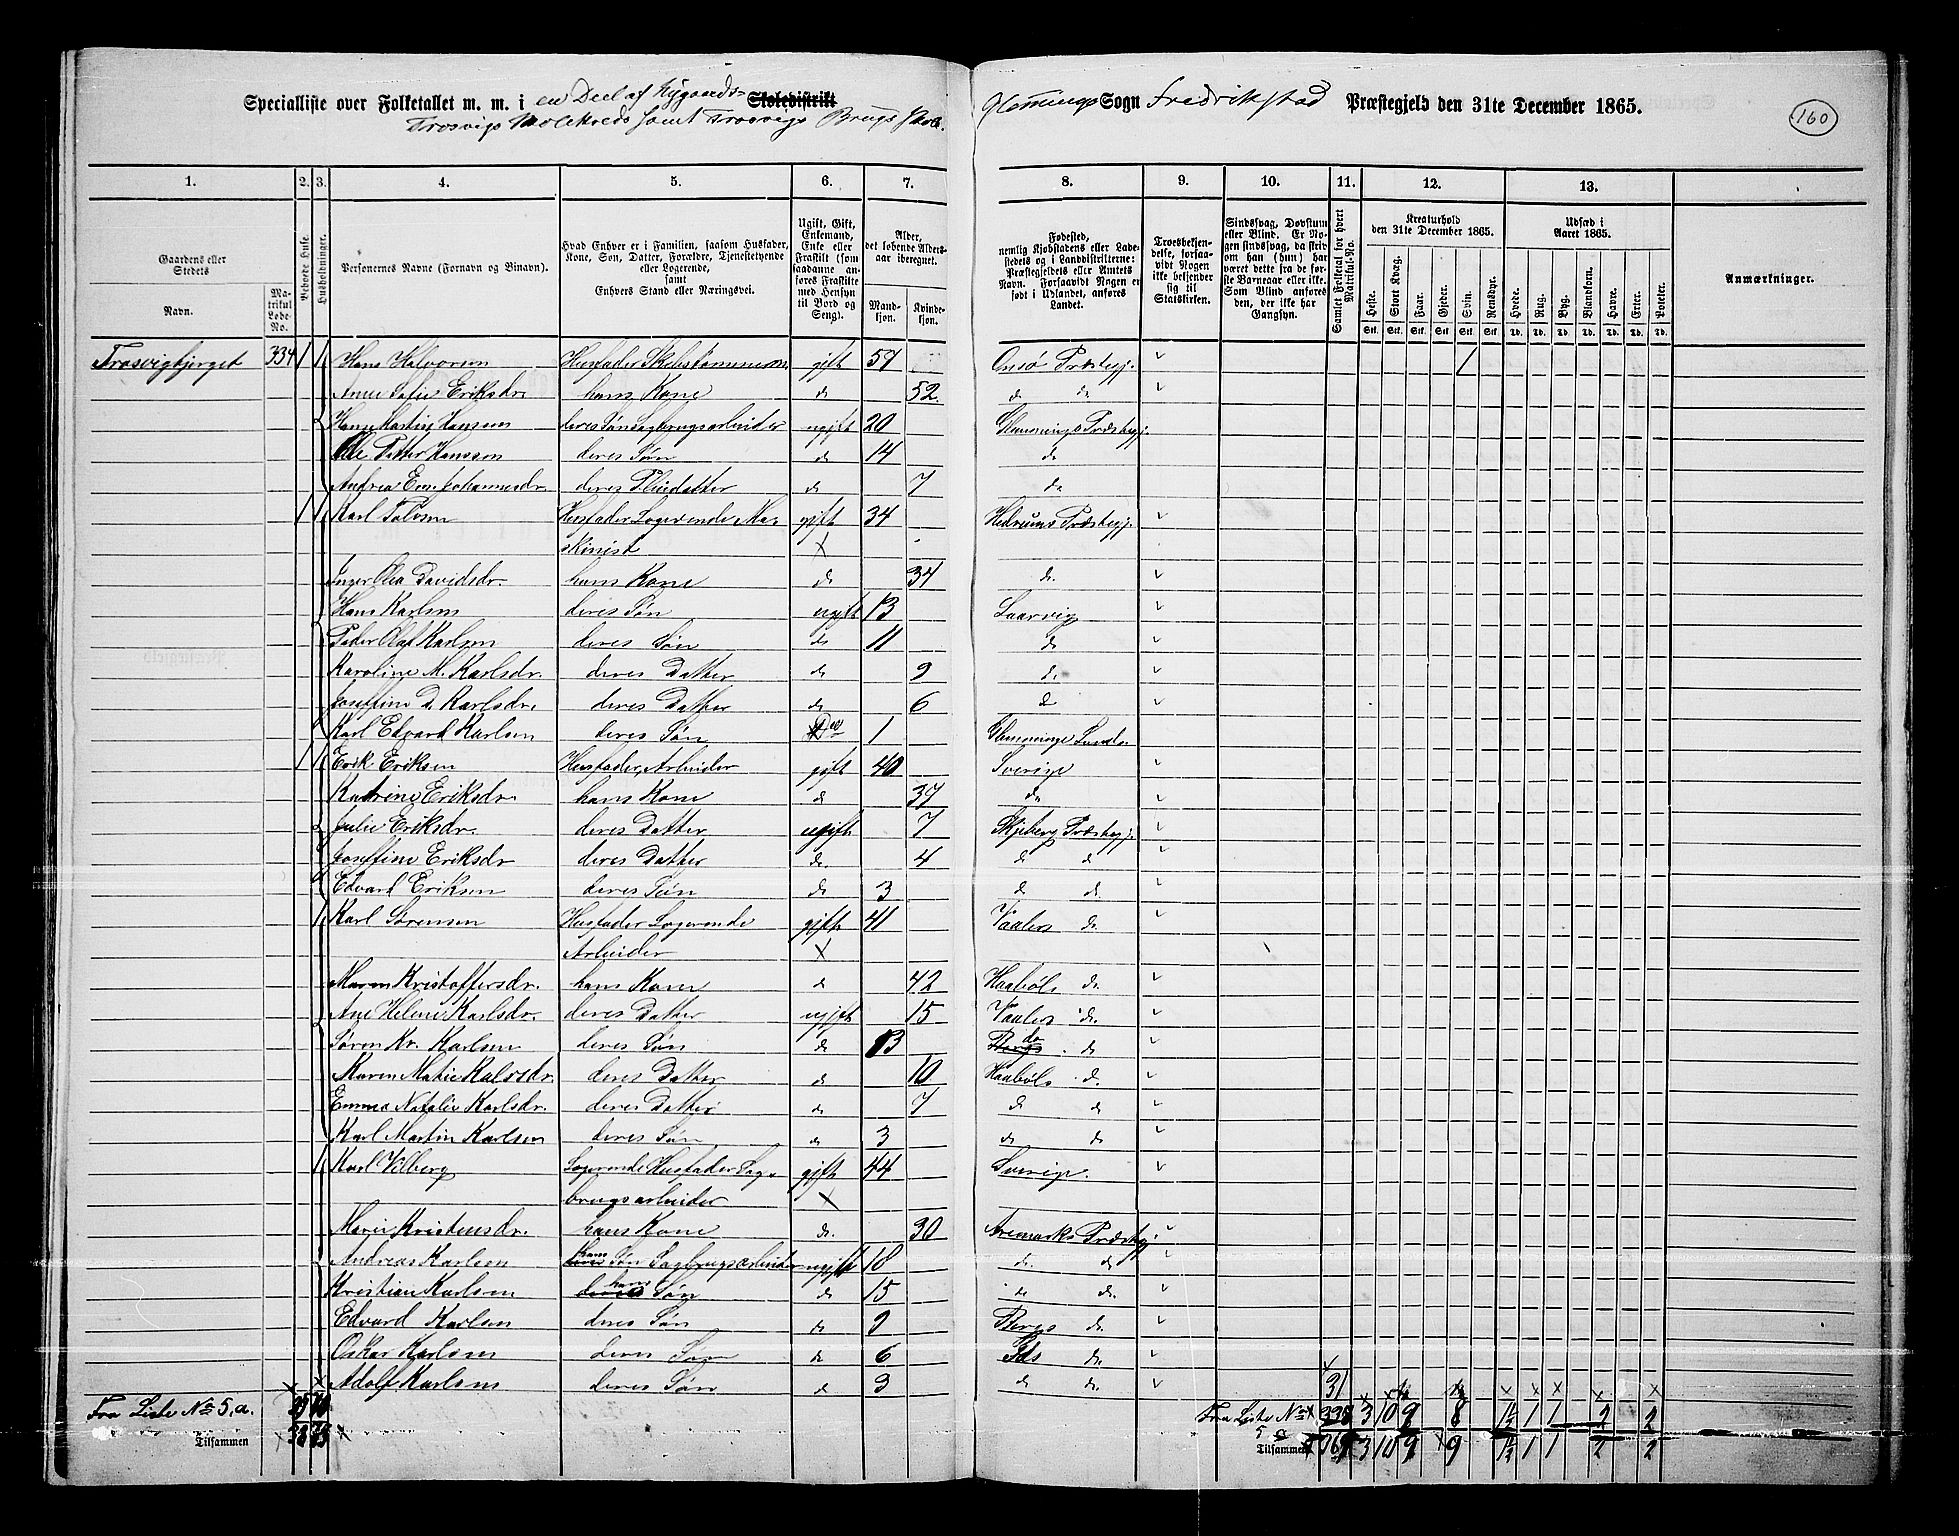 Specialliste over Folketallet m. m. i en Deel af Nygaards- Skoledistrikt Glemminge Sogn Fredrikstad Præstegjeld den 31te December 1865.
Trosvigs Skolekreds samt Trosvigs Brugs Skole.
160
1. 2. 3. 4. 5. 6. 7. 8. 9. 10. 11. 12. 13.
Gaardens eller Stedets
Navn.
Matrikul Løbe-No.
Beboede Huse.
Husholdninger.
Personernes Navne (Fornavn og Binavn).
Hvad Enhver er i Familien, saasom Husfader, Kone, Søn, Datter, Forældre, Tjenestetyende eller Logerende, samt Enhvers Stand eller Næringsvei.
Ugift, Gift, Enkemand, Enke eller Fraskilt (som saadanne anføres Fraskilte med Hensyn til Bord og Seng).
Alder, det løbende Aldersaar iberegnet.
Mandkjøn. Kvindekjøn.
Fødested, nemlig Kjøbstadens eller Ladestedets og i Landdistrikterne: Præstegjeldets eller Amtets Navn. Forsaavidt Nogen er født i Udlandet, anføres Landet.
Troesbekjendelse, forsaavidt Nogen ikke bekjender sig til Statskirken.
Sindssvag, Døvstum eller Blind. Er Nogen sindssvag, da skrives om han (hun) har været dette fra de første Barneaar eller ikke. Som Blind anføres den, der ikke har Gangsyn.
Samlet Folketal for hvert Matrikul-No.
Kreaturhold den 31te December 1865.
Heste. Stort Kvæg. Faar. Gjeder. Svin. Rensdyr.
Stk. Stk. Stk. Stk. Stk. Stk.
Udsæd i Aaret 1865.
Hvede. Rug. Byg. Blandkorn. Havre. Erter. Poteter.
Td. Td. Td. Td. Td. Td. Td.
Anmærkninger.
Trosvigbjerget 334 1 1 Hans Halvorsen Husfader Skibstømmerm. gift 57 Onsø Præstegj. 1
Anne Sofie Eriksdr. hans Kone do 52 do do
Hans Martin Hansen deres Søn Sagbrugsarbeider ugift 20 Glemminge Præstegj.
Ole Petter Hanssen deres Søn do 14 do
Andrea Em. Johannesdr. deres Pleiedatter do 7 do
1 1 Karl Paulsen Husfader Logerende Ma- gift 34 Hedrums Præstegj.
skinist X
Inger Olea Davidsdr. hans Kone do 34 do
Hans Karlsen deres Søn ugift 13 Laurvig
Peder Olaf Karlsen deres Søn do 11 do
Karoline M. Karlsdr. deres Datter do 9 do
Joseffine D. Karlsdr. deres Datter do 6 do
Karl Edvard Karlsen deres Søn do 1 Glemminge
1 1 Erik Eriksen Husfader, Arbeider gift 40 Sverige
Katrine Eriksdr. hans Kone do 37 do
Julie Eriksdr. deres Datter ugift 7 Skjeberg Præstegj.
Joseffine Eriksdr deres Datter do 4 do do
Edvard Eriksen deres Søn do 3 do do
1 Karl Sørensen Husfader Logerende gift 41 Vaalers do
Arbeider X
Maren Kristoffersdr. hans Kone do 42 Haabøls do
Ane Helene Karlsdr. deres Datter ugift 15 Vaalers do
Søren Kr. Karlsen deres Søn do 13 Bergs do do
Karen Matie Kalvsdr. deres Datter do 10 Haabøls do
Emma Natalie Karlsdr. deres Datter do 7 do do
Karl Martin Karlsen deres Søn do 3 do do
1 Karl Vilberg Logerende Husfader Sag- gift 44 Sverige.
brugsarbeider X
Marie Kristensdr. hans Kone do 30 Aremarks Præstegj.
Andreas Karlsen deres hans Søn Sagbrugsarbeider ugift 18 do do
Kristian Karlsen deres hans Søn do 15 do do
Edvard Karlsen deres Søn do 9 Bergs do
Oskar Karlsen deres Søn do 6 Ids do
Adolf Karlsen deres Søn do 3 do do
31
Fra Liste No 5, a. 35 70 Fra Liste No 5 a 338 3 10 9 8 1½ 1 1 2 2
Tilsammen 38 75 Tilsammen 369 3 10 9 9 1½ 1 1 2 2